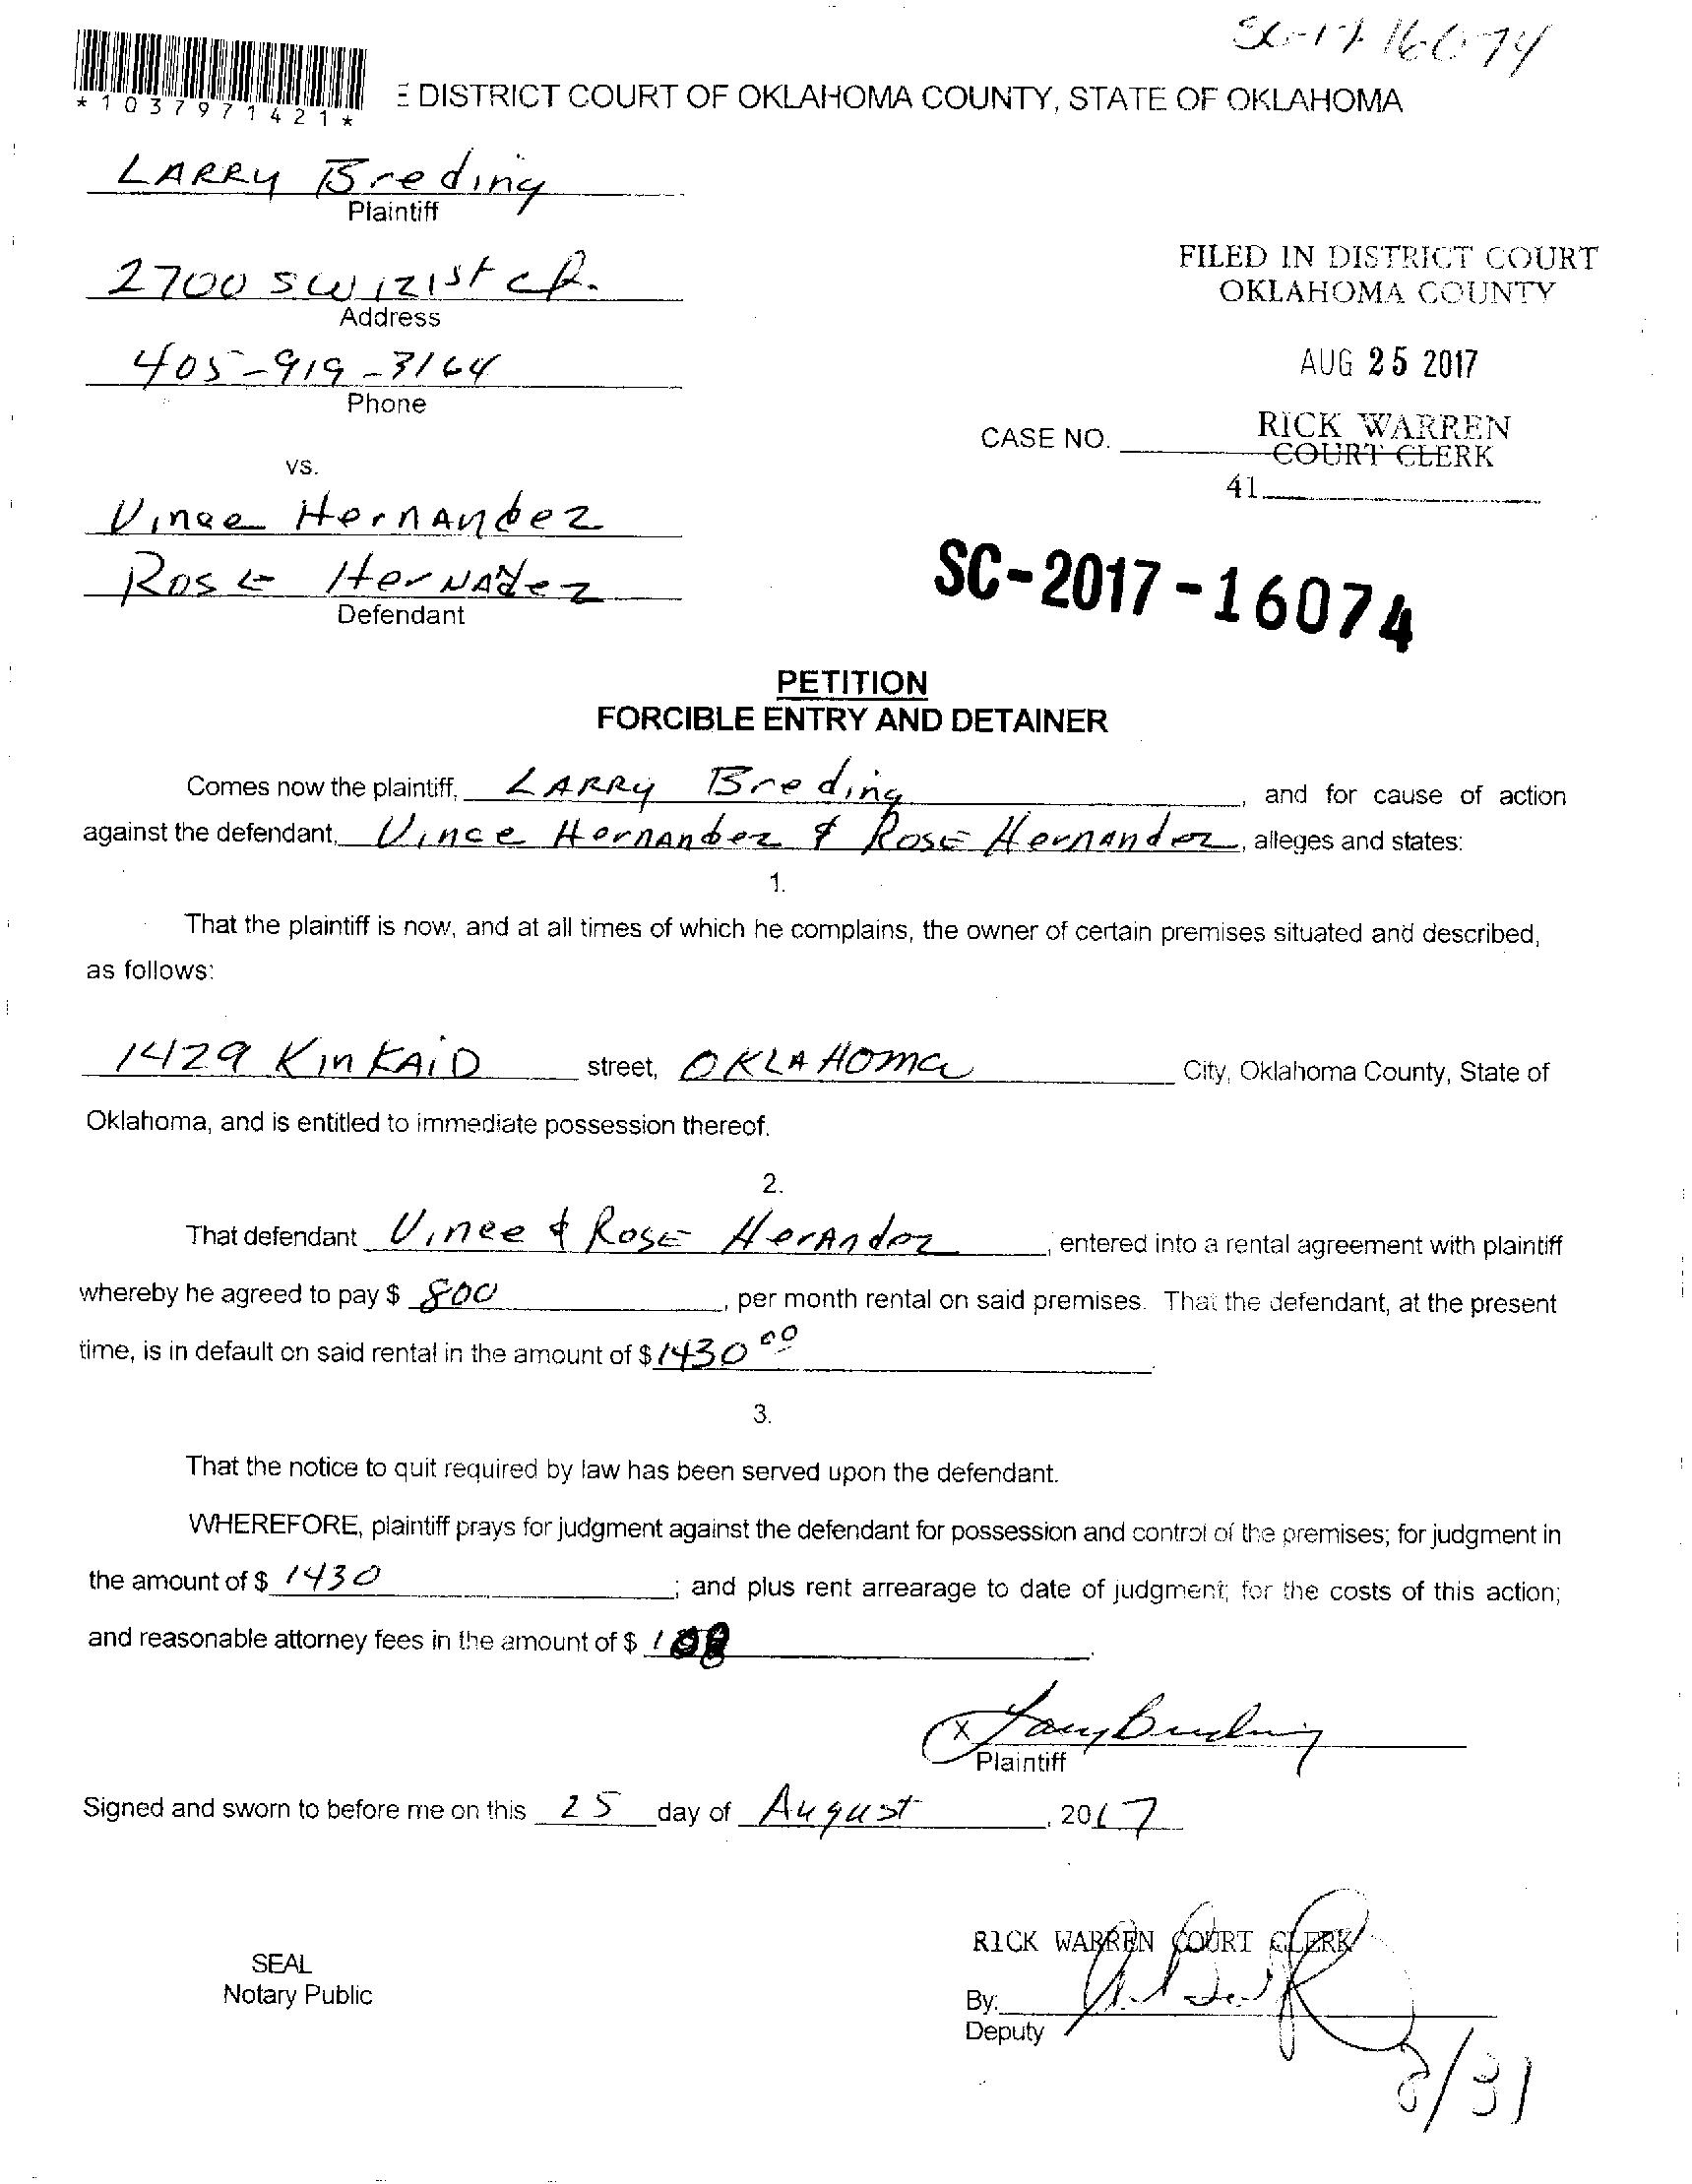 SC-17-16074
*1037971421*
E DISTRICT COURT OF OKLAHOMA COUNTY, STATE OF OKLAHOMA
LARRY Breding
Plaintiff
2700 SW 121st CR.
Address
405-919-3164
Phone
FILED IN DISTRICT COURT
OKLAHOMA COUNTY
AUG 25 2017
RICK WARREN
COURT CLERK
41
CASE NO.
vs.
Vince Hernandez
Rose Hernadez
Defendant
SC-2017-16074
PETITION
FORCIBLE ENTRY AND DETAINER
Comes now the plaintiff, LARRY Breding, and for cause of action
against the defendant, Vince Hernandez & Rose Hernandez, alleges and states:
1.
That the plaintiff is now, and at all times of which he complains, the owner of certain premises situated and described,
as follows:
1429 KinKAiD street, OKLAHOMa City, Oklahoma County, State of
Oklahoma, and is entitled to immediate possession thereof.
2.
That defendant Vince & Rose Herandez, entered into a rental agreement with plaintiff
whereby he agreed to pay $ 800, per month rental on said premises. That the defendant, at the present
time, is in default on said rental in the amount of $ 1430 00
3.
That the notice to quit required by law has been served upon the defendant.
WHEREFORE, plaintiff prays for judgment against the defendant for possession and control of the premises; for judgment in
the amount of $ 1430; and plus rent arrearage to date of judgment; for the costs of this action;
and reasonable attorney fees in the amount of $
X Larry Breding
Plaintiff
Signed and sworn to before me on this 25 day of August, 2017
SEAL
Notary Public
RICK WARREN COURT CLERK
By:
Deputy
8/31